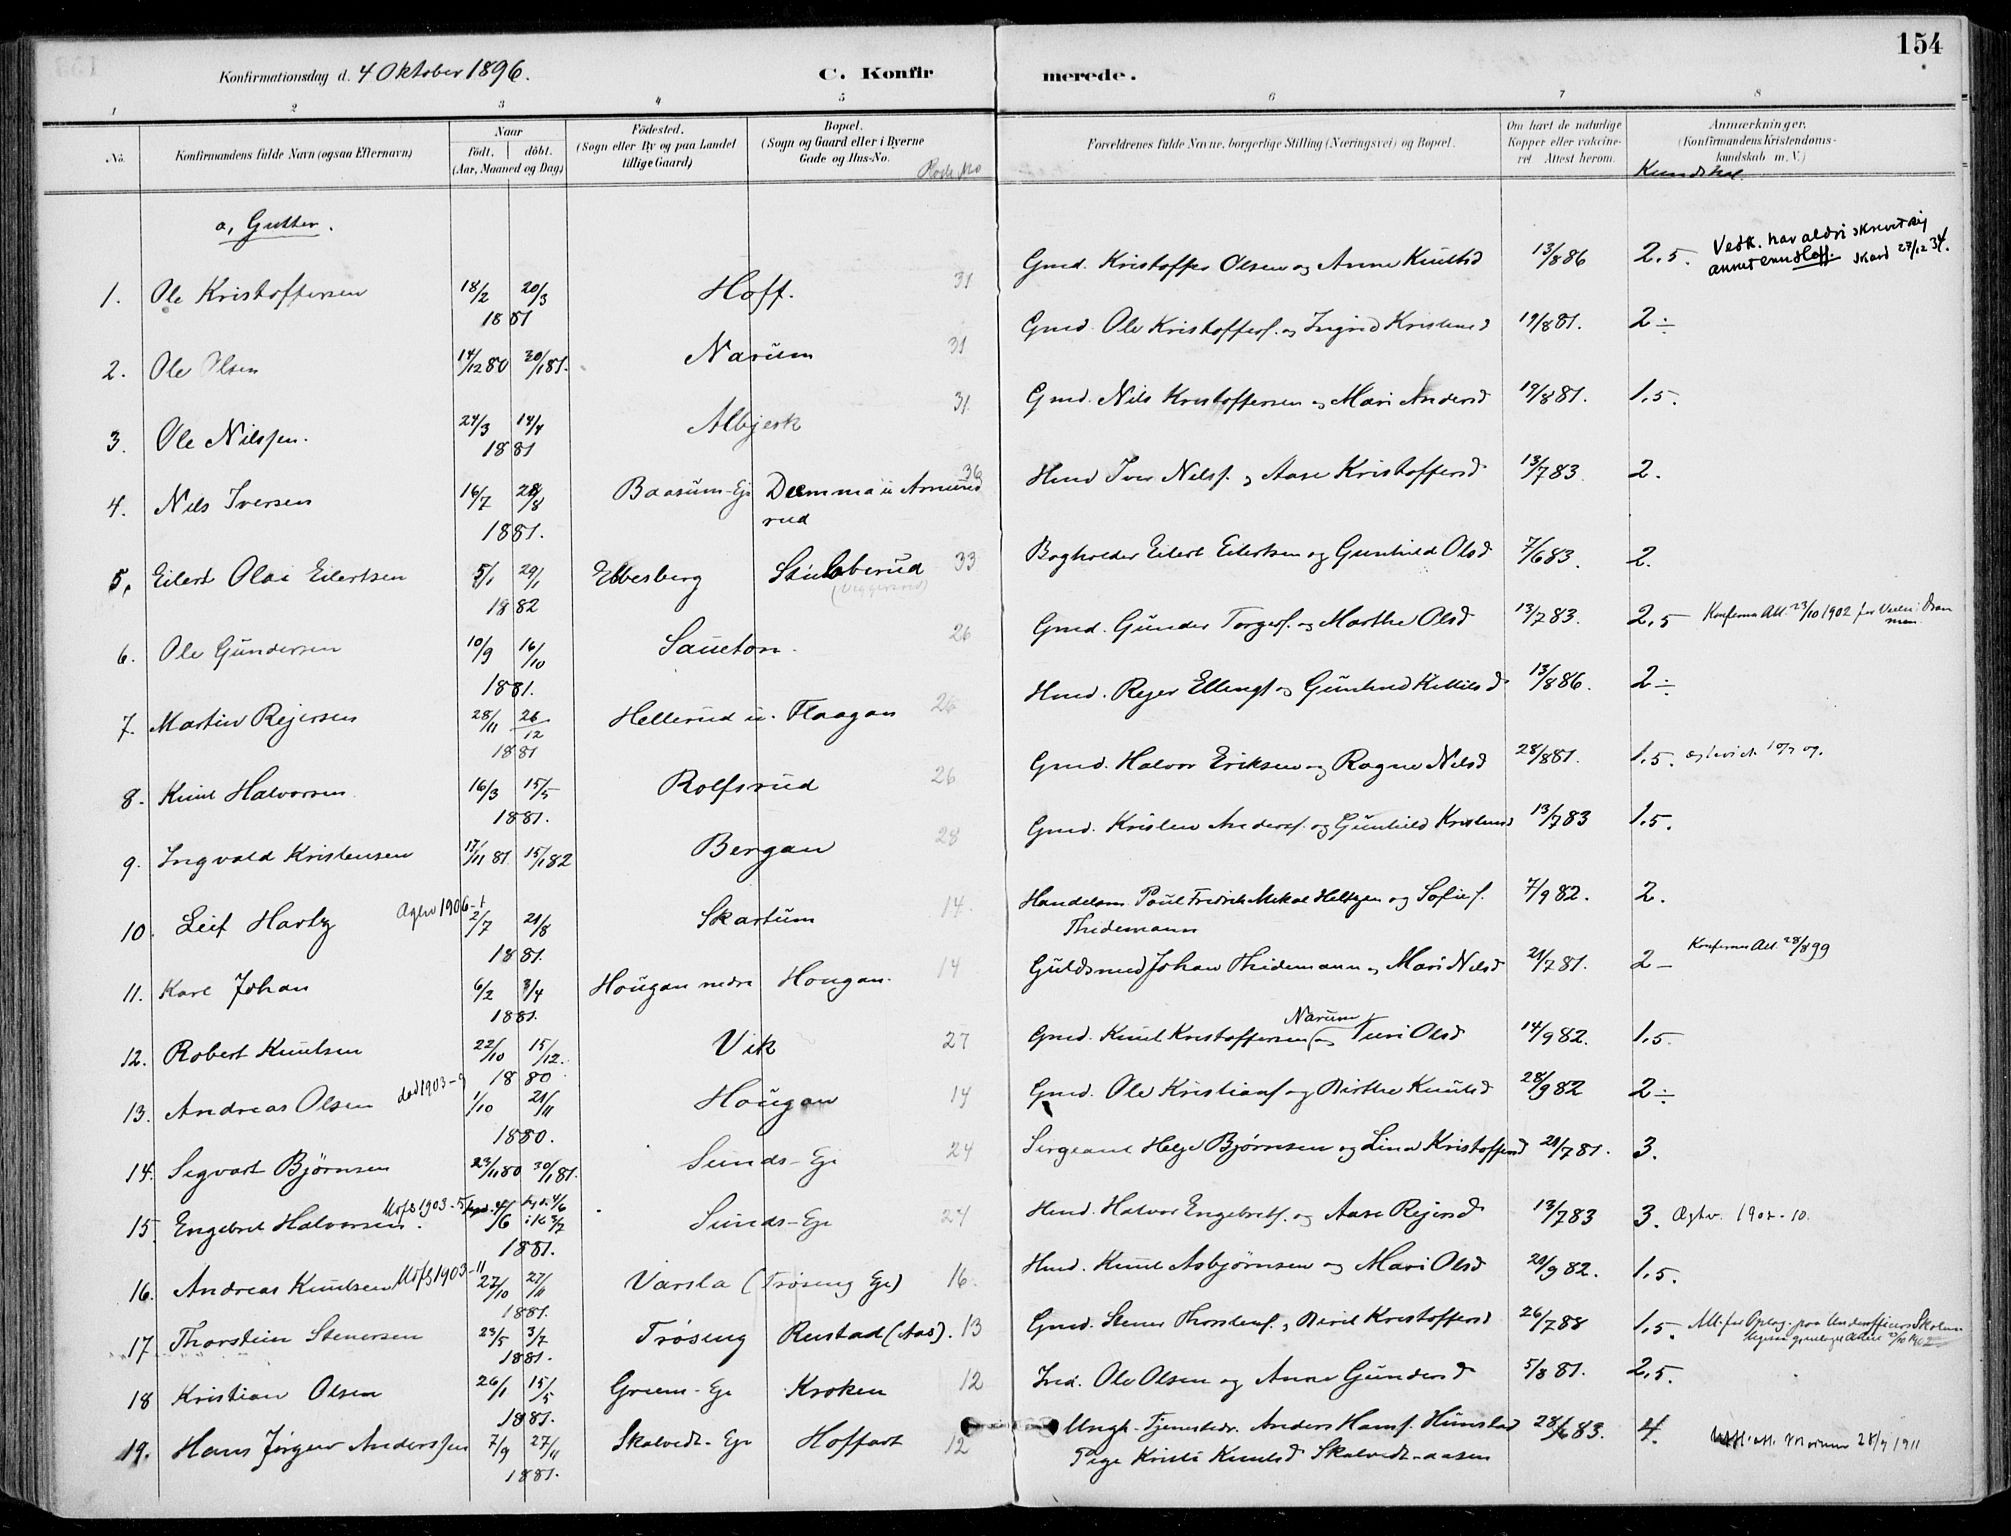 154
Konfirmationsdag d. 4 Oktober 1896.
C. Konfirmerede.
1 2 3 4 5 6 7 8
No.
Konfirmandens fulde Navn (ogsaa Efternavn)
Naar
født. døbt.
(Aar, Maaned og Dag)
Fødested.
(Sogn eller By og paa Landet
tillige Gaard)
Bopæl.
(Sogn og Gaard eller i Byerne
Gade og Hus-No.
Forældrenes fulde Navne, borgerlige Stilling (Næringsvei) og Bopæl.
Om havt de naturlige
Kopper eller vakcine-
ret Attest herom.
Anmærkninger,
(Konfirmandens Kristendoms-
kundskab m. V.)
a, Gutter.
1. Ole Kristoffersen 18/2 20/3 1881 Hoff. 31 Gmd. Kristoffer Olsen og Anne Knutsd 13/8 86 2,5. Vedk. har aldri skrevet sig
annet enn Hoff. 27/12 34.
2. Ole Olsen 14/12 80 30/1 81. Narum 31 Gmd. Ole Kristoffers. og Ingrid Kristensd 19/8 81. 2÷
3. Ole Nilssen. 24/3 14/4 1881 Albjerk 31 Gmd. Nils Kristoffersen og Mari Andersd 19/8 81. 1,5.
4. Nils Iversen 16/7 28/8 1881. Baasum-Eje Dæmma u Amund
rud 36 Hmd Iver Nilss. og Aase Kristoffersd 13/7 83. 2.
5. Eilert Olai Eilertsen 5/1 29/1 1882 Ebbesberg Stubberud 33 Bogholder Eilert Eilertsen og Gunhild Olsd 7/6 83. 2.
6. Ole Gundersen 10/9 16/10 1881. Saueton. 26 Gmd. Gunder Torgers. og Marthe Olsd 13/7 83. 2,5 Konferm Att. 23/10 1902 for Dram
men
7. Martin Rejersen 28/11 26/12 1881 Hellerud u. Flaagan 26 Hmd. Rejer Ellings. og Gunhild Kittilsd 13/8 86. 2÷
8. Knut Halvorsen 16/3 15/5 1881. Rolfsrud 26 Gmd. Halvor Eriksen og Ragne Nilsd 28/8 81. 1,5.
9. Ingvald Kristensen 17/11 81 15/1 82 Bergan 28 Gmd. Kristen Anders. og Gunhild Kristensd 13/7 83 1,5.
10. Leif Harby 2/7 21/8 1881. Skartum 14. Handelsm. Paul Fredrik Mikal Heltzen og Sofie f.
Thidemann 7/9 82. 2.
11. Karl Johan 6/2 3/4 1881. Hougan nedre Hougan. 14 Guldsmed Johan Thidemann og Mari Nilsd 21/7 81. 2- Konferm Att. 28/8 99
12. Robert Knutsen 22/10 15/12. 1880 Vik 27 Gmd. Knut Kristoffersen Narum og Turi Olsd 14/9 82. 1,5.
13. Andreas Olsen død 1903-9 1/10 21/11 1880. Hougan 14 Gmd. Ole Kristians. og Birthe Knutsd 28/9 82 2÷
14. Segvart Bjørnsen 23/11 80 30/1 81. Sunds-Eje 24 Sergeant Helge Bjørnsen og Lina Kristoffersd 21/7 81. 3.
15. Engebret Halvorsen. 4/6 1881. Sunds-Eje 24 Hmd. Halvor Engebrets. og Aase Rejersd 13/7 83 3. Ægtev. 1902-10.
16. Andreas Knutsen 27/10 27/11 1881. Varsla (Trøseng Eje) 16. Hmd. Knut Asbjørnsen og Mari Olsd 29/9 82. 1,5.
17. Thorstein Stenersen 23/5 3/7 1881. Trøseng Rustad (Aas). 13 Gmd. Stener Thorstens. og Berit Kristoffersd 26/7 88 1,5. Att. for Optag. paa Underofficers Skolen
18 Kristian Olsen 26/1 15/5 1881. Gruem-Eje Kroken 12 Ind. Ole Olsen og Anne Gundersd 5/8 81. 2,5.
19. Hans Jørgen Anderssen 7/9 27/11 1881. Skalvedt-Eje Hoffart 12 Ungk. Tjenestedr. Anders Hanss. Hunstad
Pige Kristi Knutsd Skalvedt-aasen 28/6 83. 4.